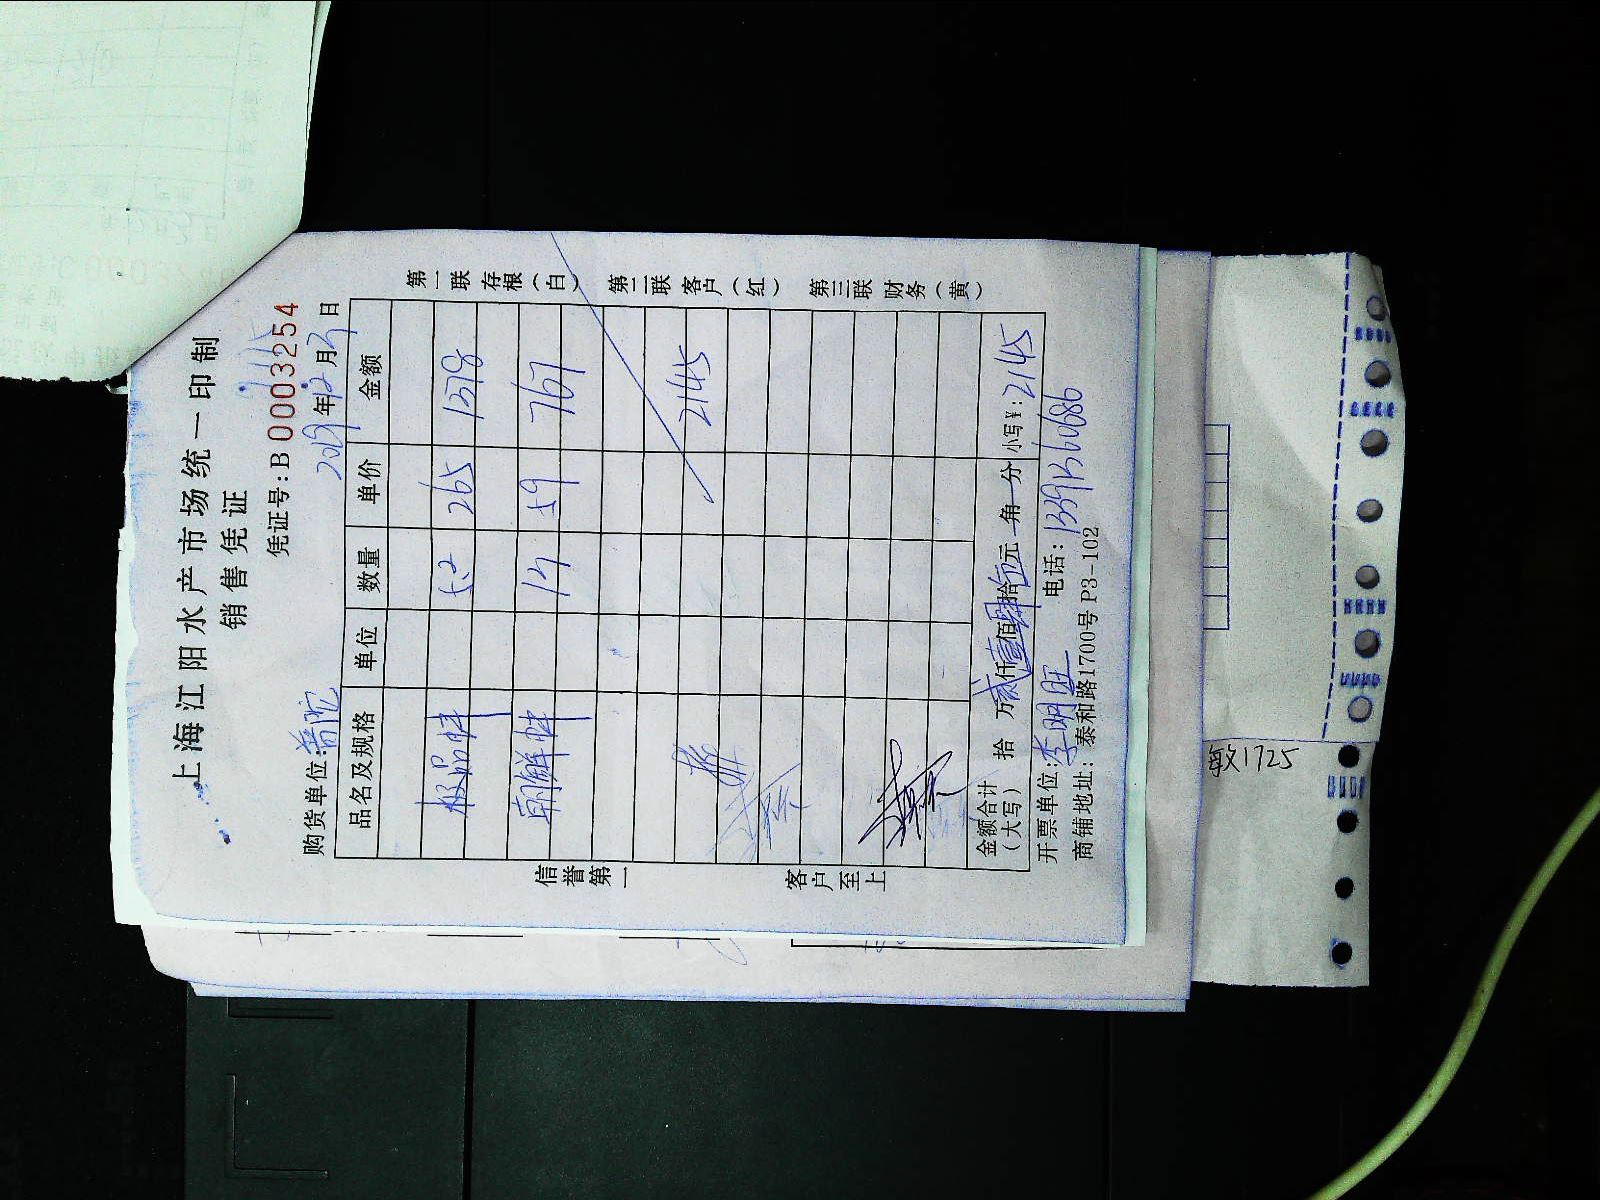 上海江阳水产市场统一印制
销售凭证
凭证号:B 0003254
购货单位:普陀 2019年12月2日
品名及规格 单位 数量 单价 金额
极品蚌 5.2 265 1378
朝鲜蚌 13 59 767
2145
金额合计(大写) 拾 万贰仟壹佰肆拾伍元 角 分 小写¥:2145
开票单位:李明旺 电话:13391360686
商铺地址:泰和路1700号 P3-102
信誉第一
客户至上
第一联 存根(白)
第二联 客户(红)
第三联 财务(黄)
1725